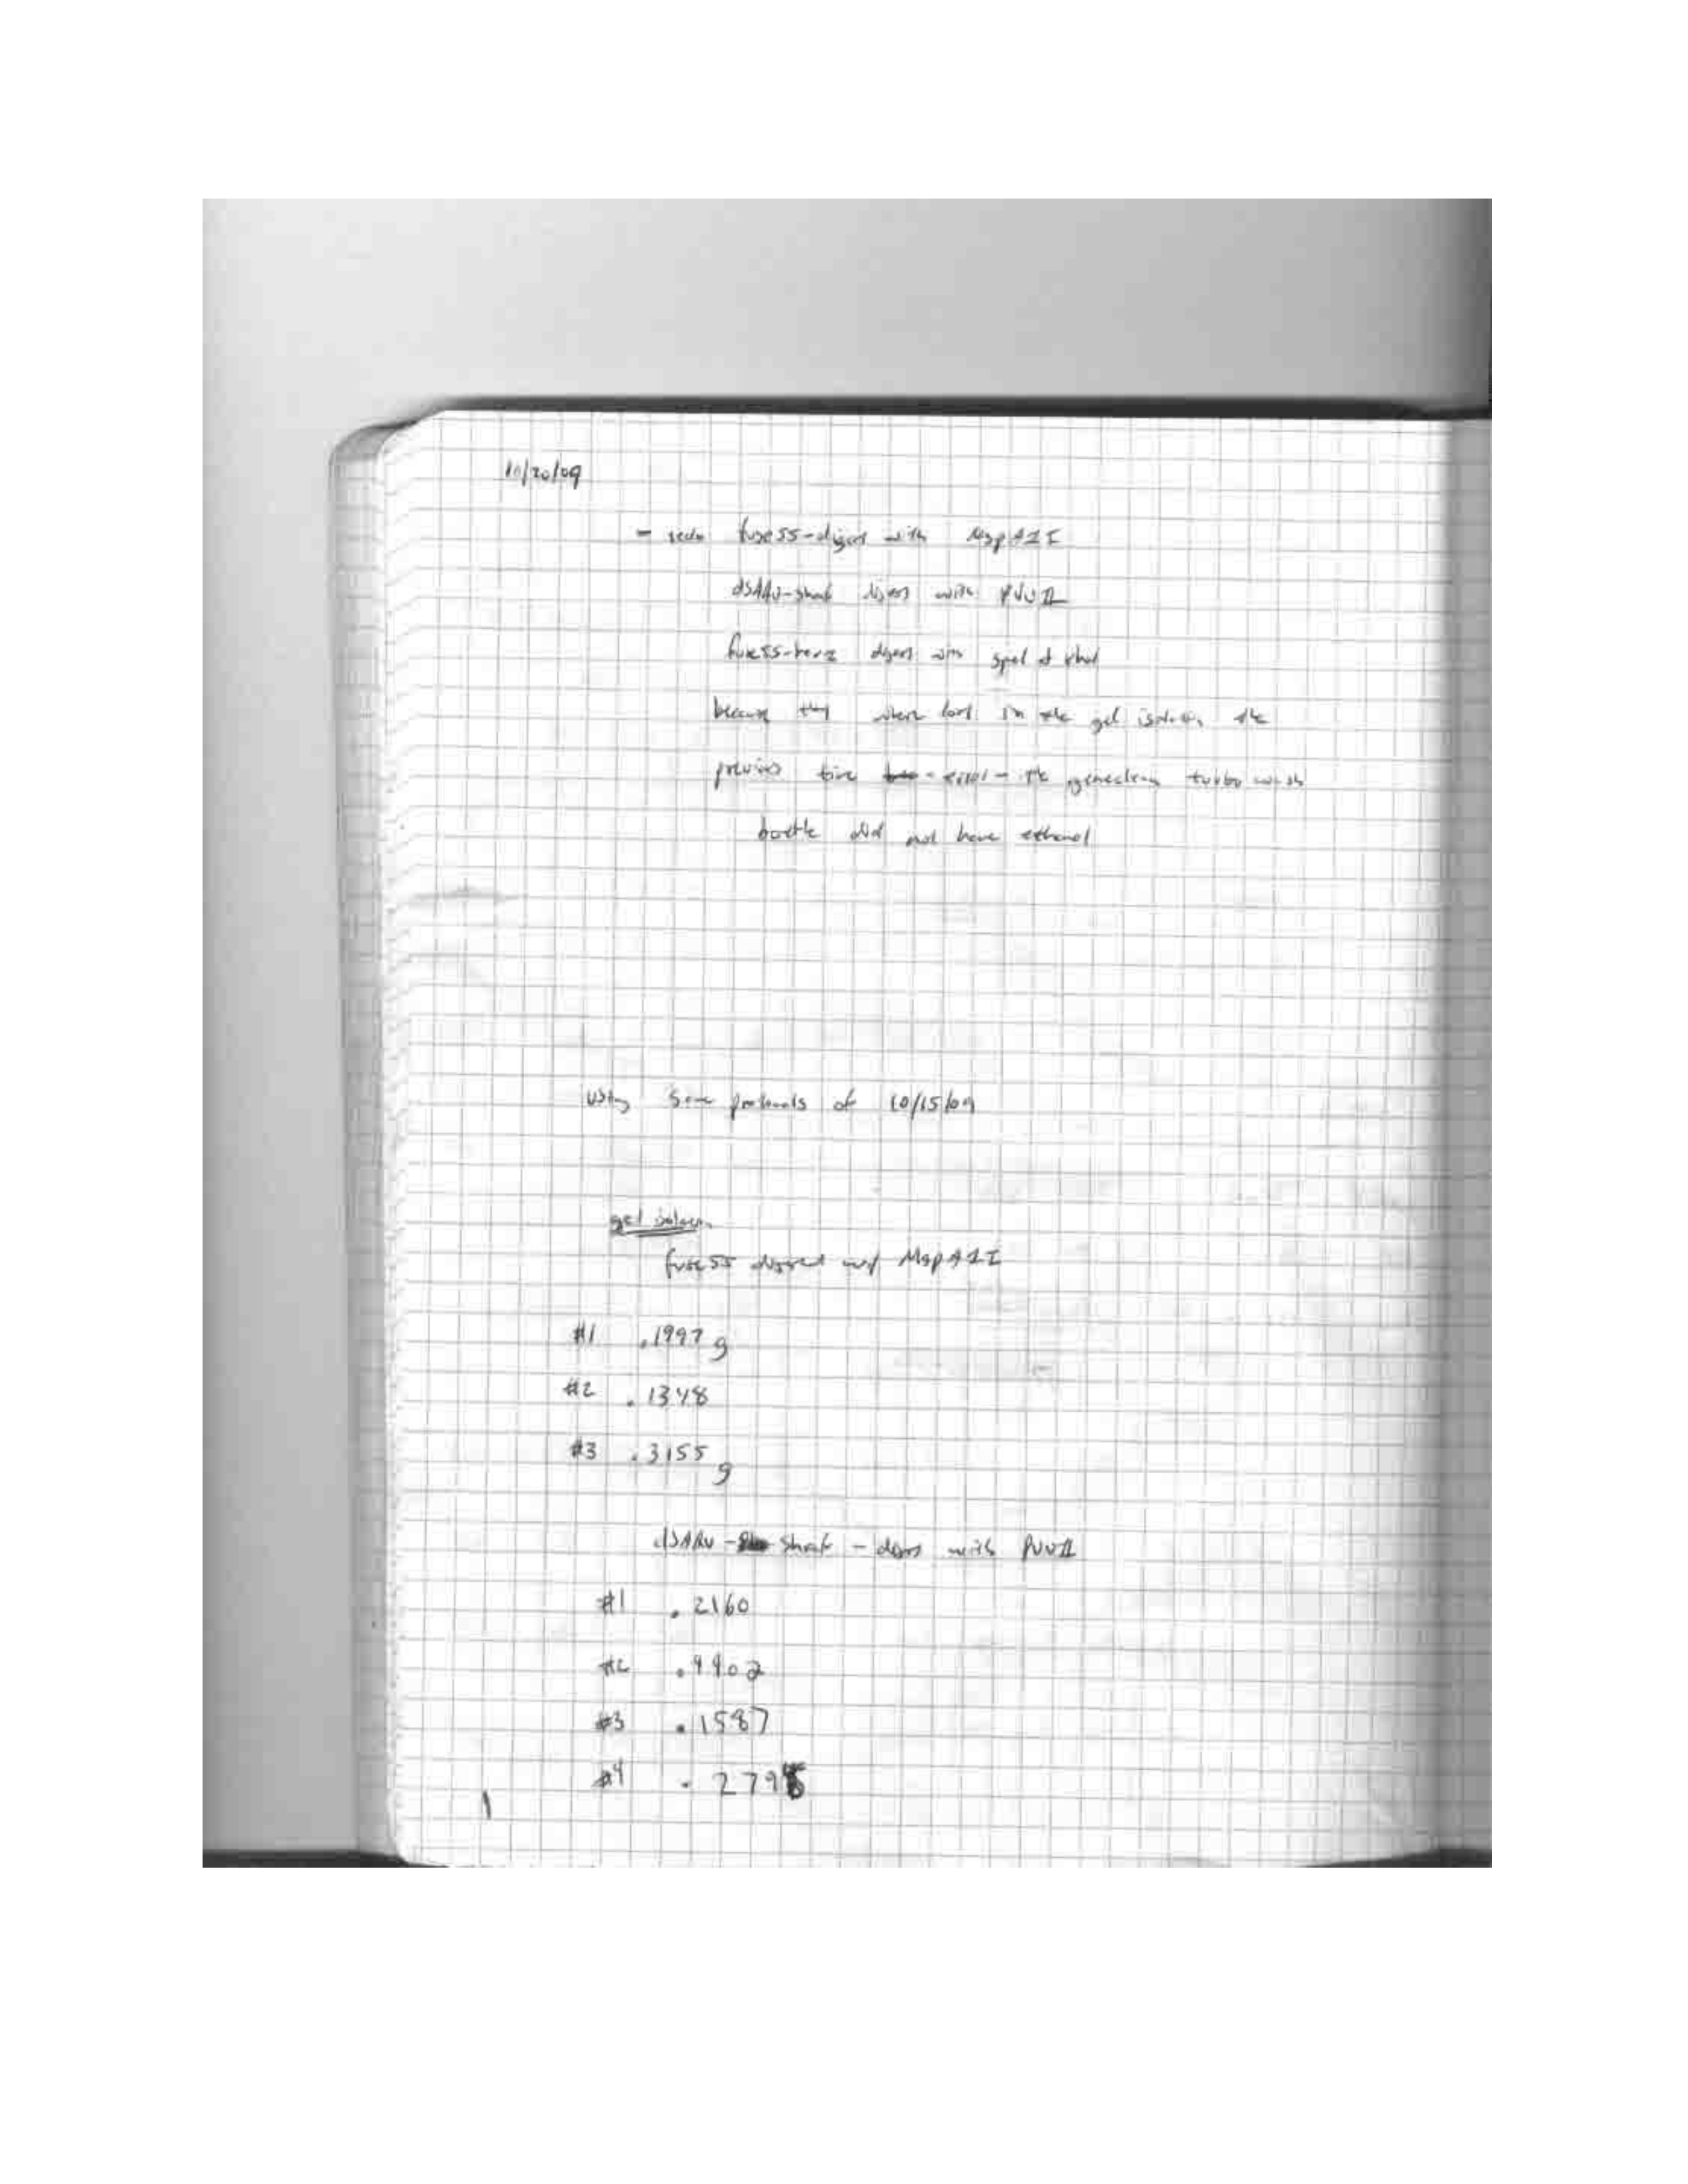 10/20/09
- redo fuse55-digest with MspA1I
digest with PVUII
fuse55- digest with speI
because they where lost in the gel isolation the
previous time - error - the geneclean turbo wash
bottle did not have ethanol
using same protocols of 10/15/09
gel isolation
fuse55 digest w/ MspA1I
#1 .1997 g
#2 .1348
#3 .3155 g
- digest with PVUII
#1 .2160
#2
#3 .1587
#4